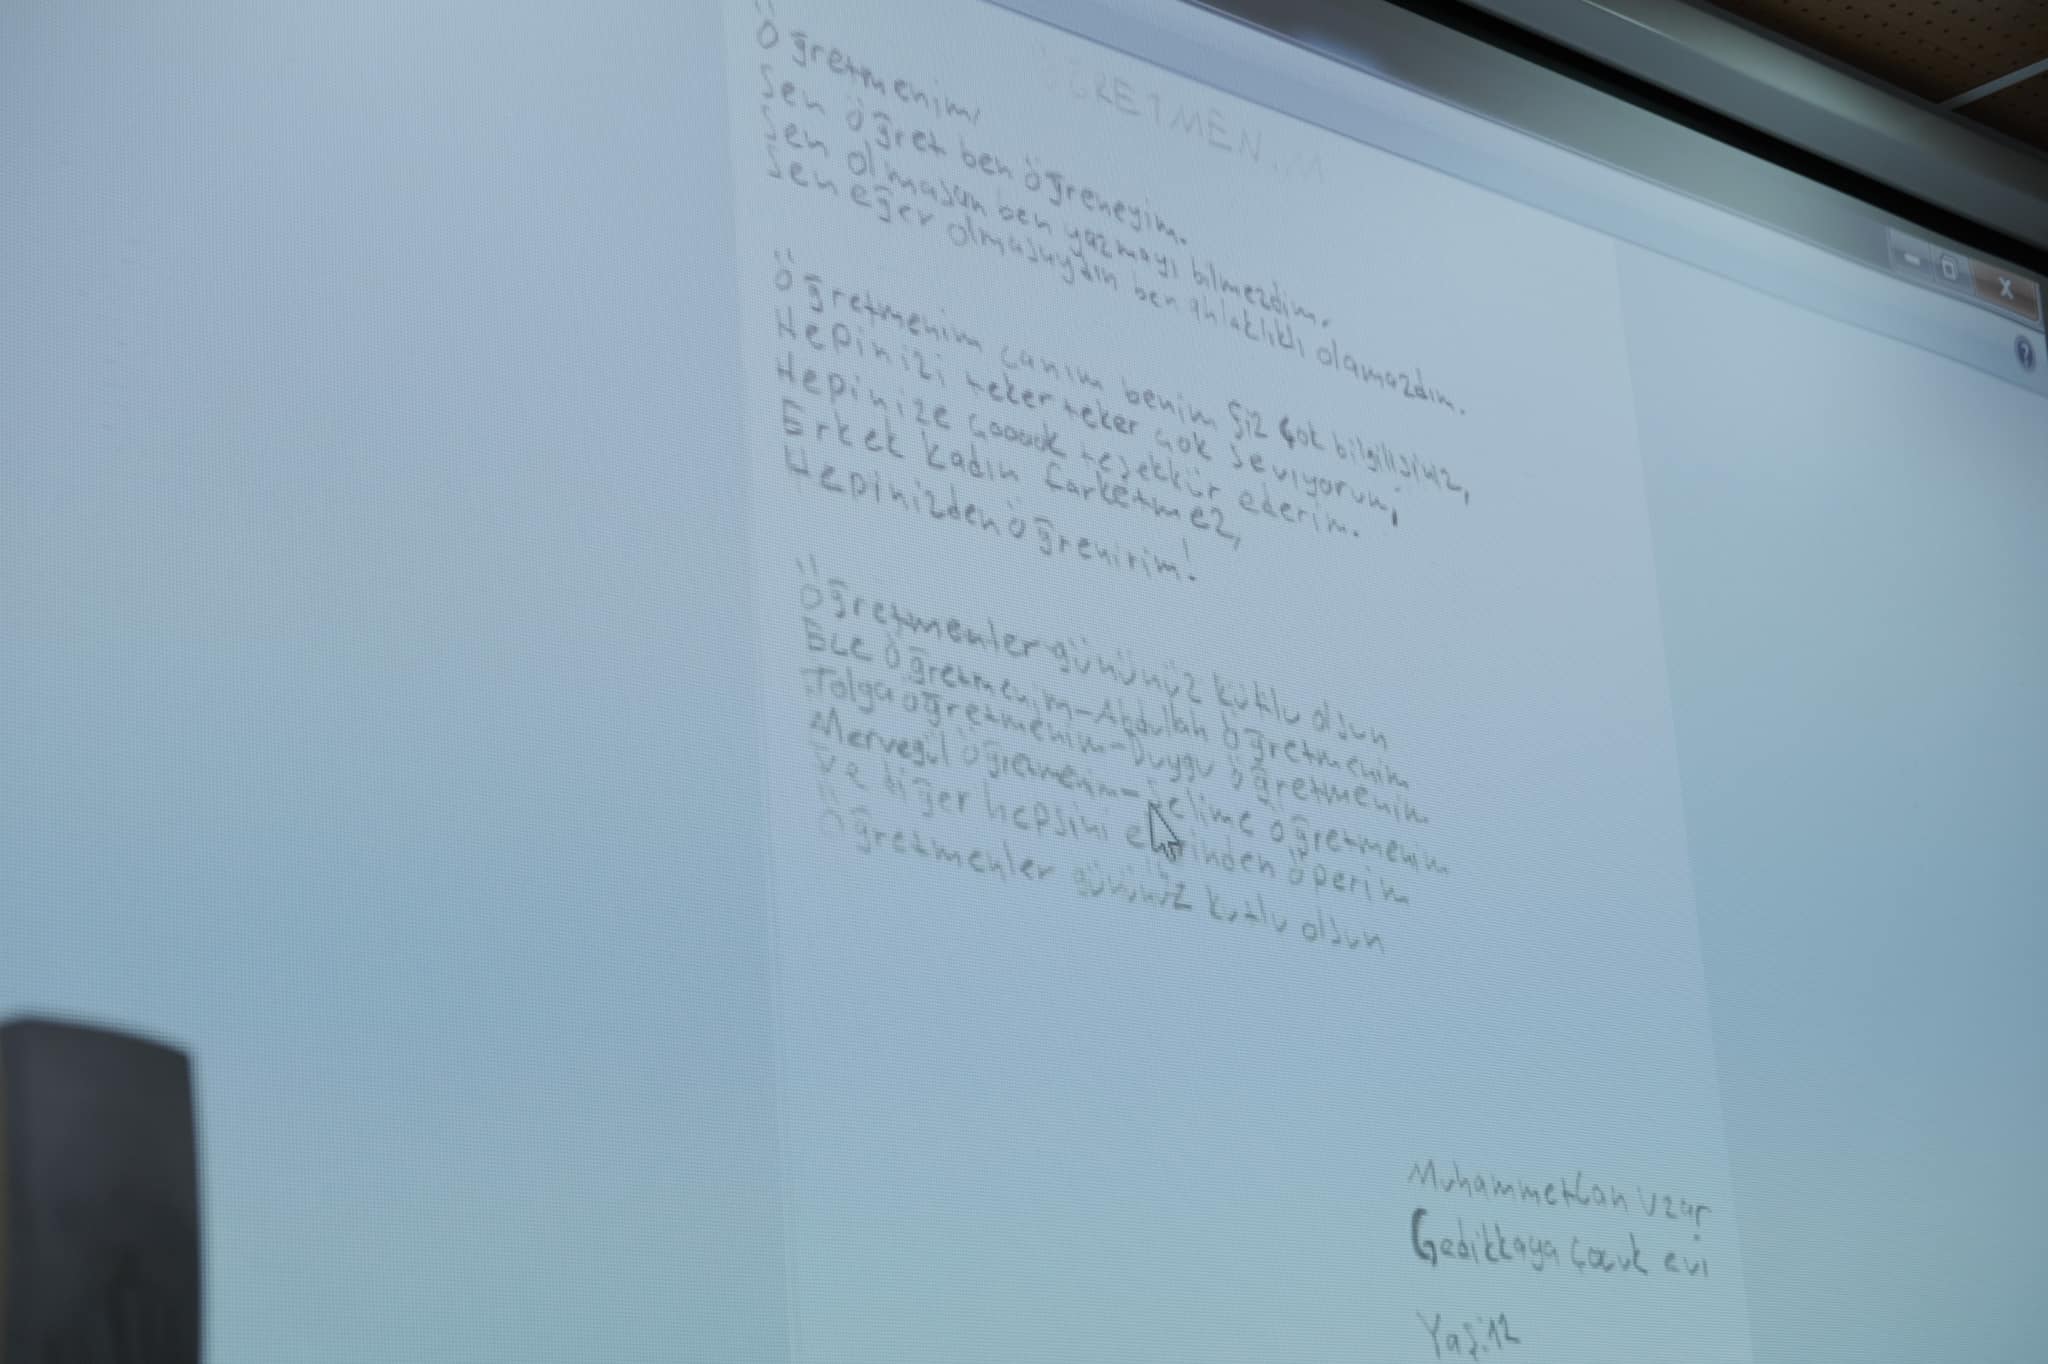 ÖĞRETMENİM
Öğretmenim,
Sen öğret ben öğreneyim.
Sen olmasan ben yazmayı bilmezdim.
Sen eğer olmasaydın ben ahlaklıklı olamazdım.
Öğretmenim canım benim Siz Çok bilgilisiniz,
Hepinizi teker teker çok seviyorum,
Hepinize çooook teşekkür ederim.
Erkek kadın farketmez,
Hepinizden öğrenirim!
Öğretmenler gününüz kutlu olsun
Ece öğretmenim-Abdullah öğretmenim
Tolga öğretmenim-Duygu öğretmenim
Mervegül öğretmenim-Selime öğretmenim
Ve diğer hepsini ellerinden öperim
Öğretmenler gününüz kutlu olsun
Muhammetcan Uzar
Gedikkaya çocuk evi
Yaş:12